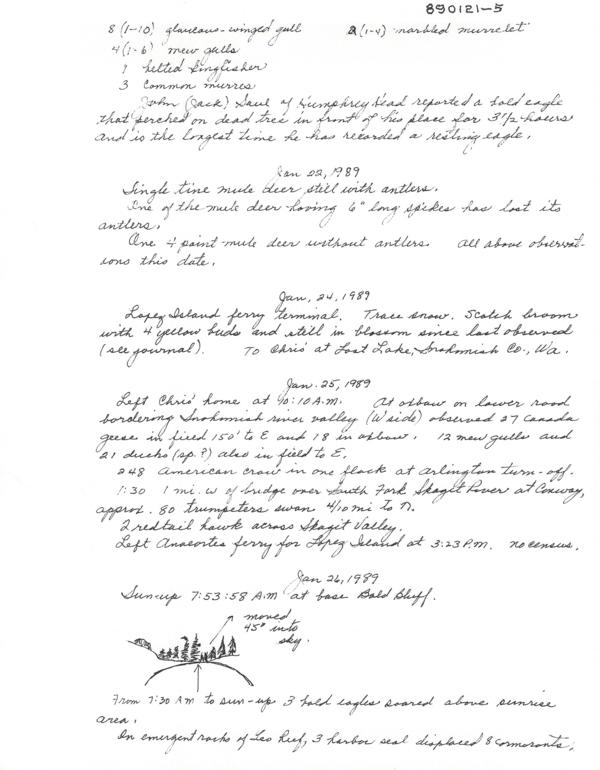 890121-5
8 (1-10) glaucous-winged gull 2 (1-4) marbled murrelet
4 (1-6) mew gulls
1 belted kingfisher
3 common murres
John (Jack) Saul of Humphrey Head reported a bald eagle
that perched on dead tree in front of his place for 3 1/2 hours
and is the longest time he has recorded a resting eagle.
Jan 22, 1989
Single tine mule deer still with antlers.
One of the mule deer having 6" long spikes has lost its
antlers.
One 4 point mule deer without antlers. All above observat-
ions this date.
Jan, 24, 1989
Lopez Island ferry terminal. Trace snow. Scotch broom
with 4 yellow buds and still in blossom since last observed
(see journal). To Chris' at Lost Lake, Snohomish Co., Wa.
Jan. 25, 1989
Left Chris' home at 10:10 A.M. At oxbow on lower road
bordering Snohomish river valley (W side) observed 27 Canada
geese in field 150' to E and 18 in oxbow. 12 mew gulls and
21 ducks (sp.?) also in field to E.
248 American crow in one flock at Arlington turn-off.
1:30 1 mi. W of bridge over South Fork Skagit River at Conway,
approx. 80 trumpeters swan 4/10 mi to N.
2 redtail hawk across Skagit Valley.
Left Anacortes ferry for Lopez Island at 3:23 P.M. no census.
Jan 26, 1989
Sun-up 7:53:58 A.M at base Bald Bluff.
moved
45° into
sky.
From 7:30 AM to sun-up 3 bald eagles soared above sunrise
area.
On emergent rocks of Leo Reef, 3 harbor seal displaced 8 cormorants.